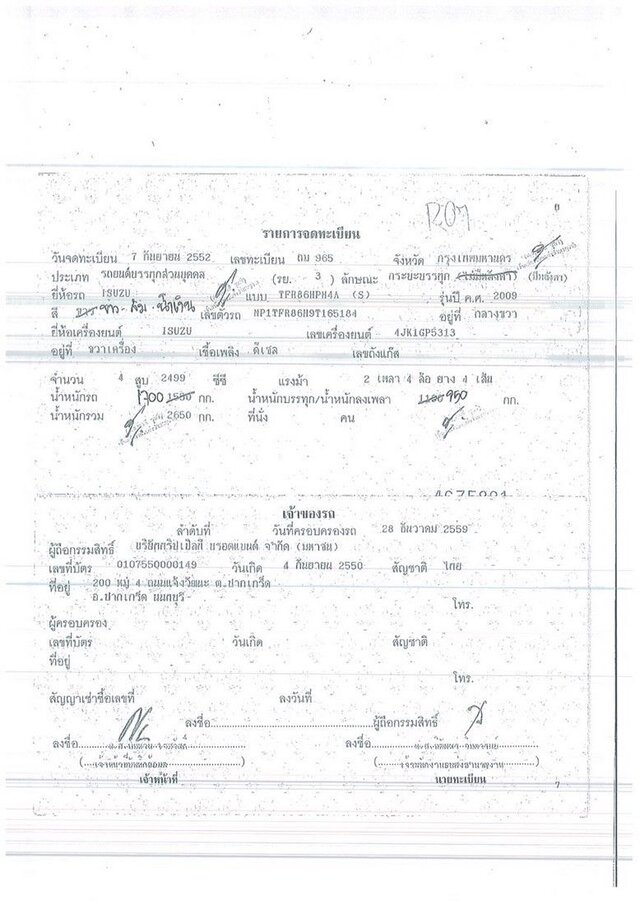 รายการจดทะเบียน
วันจดทะเบียน 7 กันยายน 2552 เลขทะเบียน ถม 965 จังหวัด กรุงเทพมหานคร
ประเภท รถยนต์บรรทุกส่วนบุคคล (รย. 3 ) ลักษณะ กระบะบรรทุก
ยี่ห้อรถ ISUZU แบบ TFR86HPH4A (S) รุ่นปี ค.ศ. 2009
สี เลขตัวรถ MP1TFR86H9T165184 อยู่ที่ กลางขวา
ยี่ห้อเครื่องยนต์ ISUZU เลขเครื่องยนต์ 4JK1GP5313
อยู่ที่ ขวาเครื่อง เชื้อเพลิง ดีเซล เลขถังแก๊ส
จำนวน 4 สูบ 2499 ซีซี แรงม้า 2 เพลา 4 ล้อ ยาง 4 เส้น
น้ำหนักรถ 1700 1580 กก. น้ำหนักบรรทุก/น้ำหนักลงเพลา 1100 950 กก.
น้ำหนักรวม 2650 กก. ที่นั่ง คน
เจ้าของรถ
ลำดับที่ วันที่ครอบครองรถ 28 ธันวาคม 2559
ผู้ถือกรรมสิทธิ์ บริษัททริปเปิลที บรอดแบนด์ จำกัด (มหาชน)
เลขที่บัตร 0107550000149 วันเกิด 4 กันยายน 2550 สัญชาติ ไทย
ที่อยู่ 200 หมู่ 4 ถนนแจ้งวัฒนะ ต.ปากเกร็ด
อ.ปากเกร็ด นนทบุรี
โทร.
ผู้ครอบครอง
เลขที่บัตร วันเกิด สัญชาติ
ที่อยู่
โทร.
สัญญาเช่าซื้อเลขที่ ลงวันที่
ลงชื่อ ผู้ถือกรรมสิทธิ์
ลงชื่อ ลงชื่อ
เจ้าหน้าที่ นายทะเบียน
7